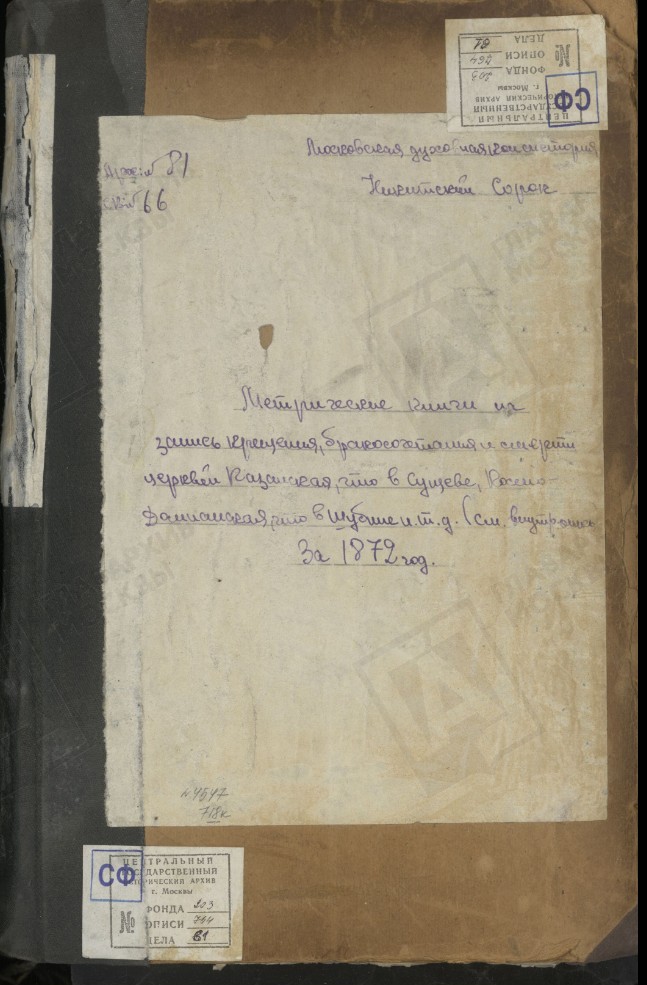 ЦЕНТРАЛЬНЫЙ
ГОСУДАРСТВЕННЫЙ
ИСТОРИЧЕСКИЙ АРХИВ
г. Москвы
СФ
№
ФОНДА 203
ОПИСИ 744
ДЕЛА 81
81
66
Московская духовная консистория
Никитский Сорок
Метрические книги на
запись крещения, бракосочетания и смерти
церквей Казанская, что в Сущеве, Космо-
Дамианская, что в Шубине и.т.д. (см. внутр.опись
За 1872 год.
л. 4547
718к
СФ
ЦЕНТРАЛЬНЫЙ
ГОСУДАРСТВЕННЫЙ
ИСТОРИЧЕСКИЙ АРХИВ
г. Москвы
№
ФОНДА 203
ОПИСИ 744
ДЕЛА 81
ГЛАВАРХИВ
МОСКВЫ